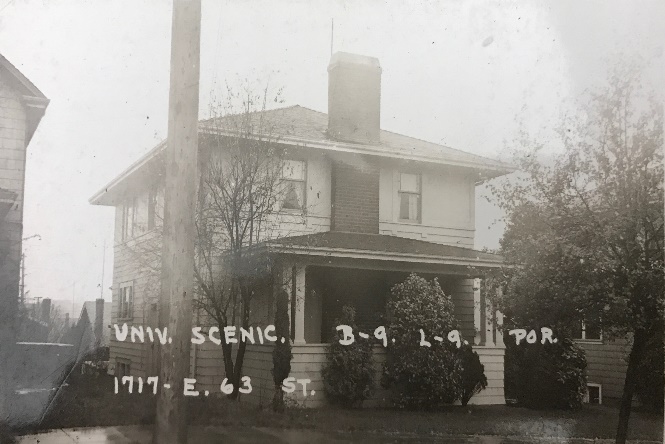 UNIV. SCENIC. B-9. L-9. POR.
1717- E. 63 ST.